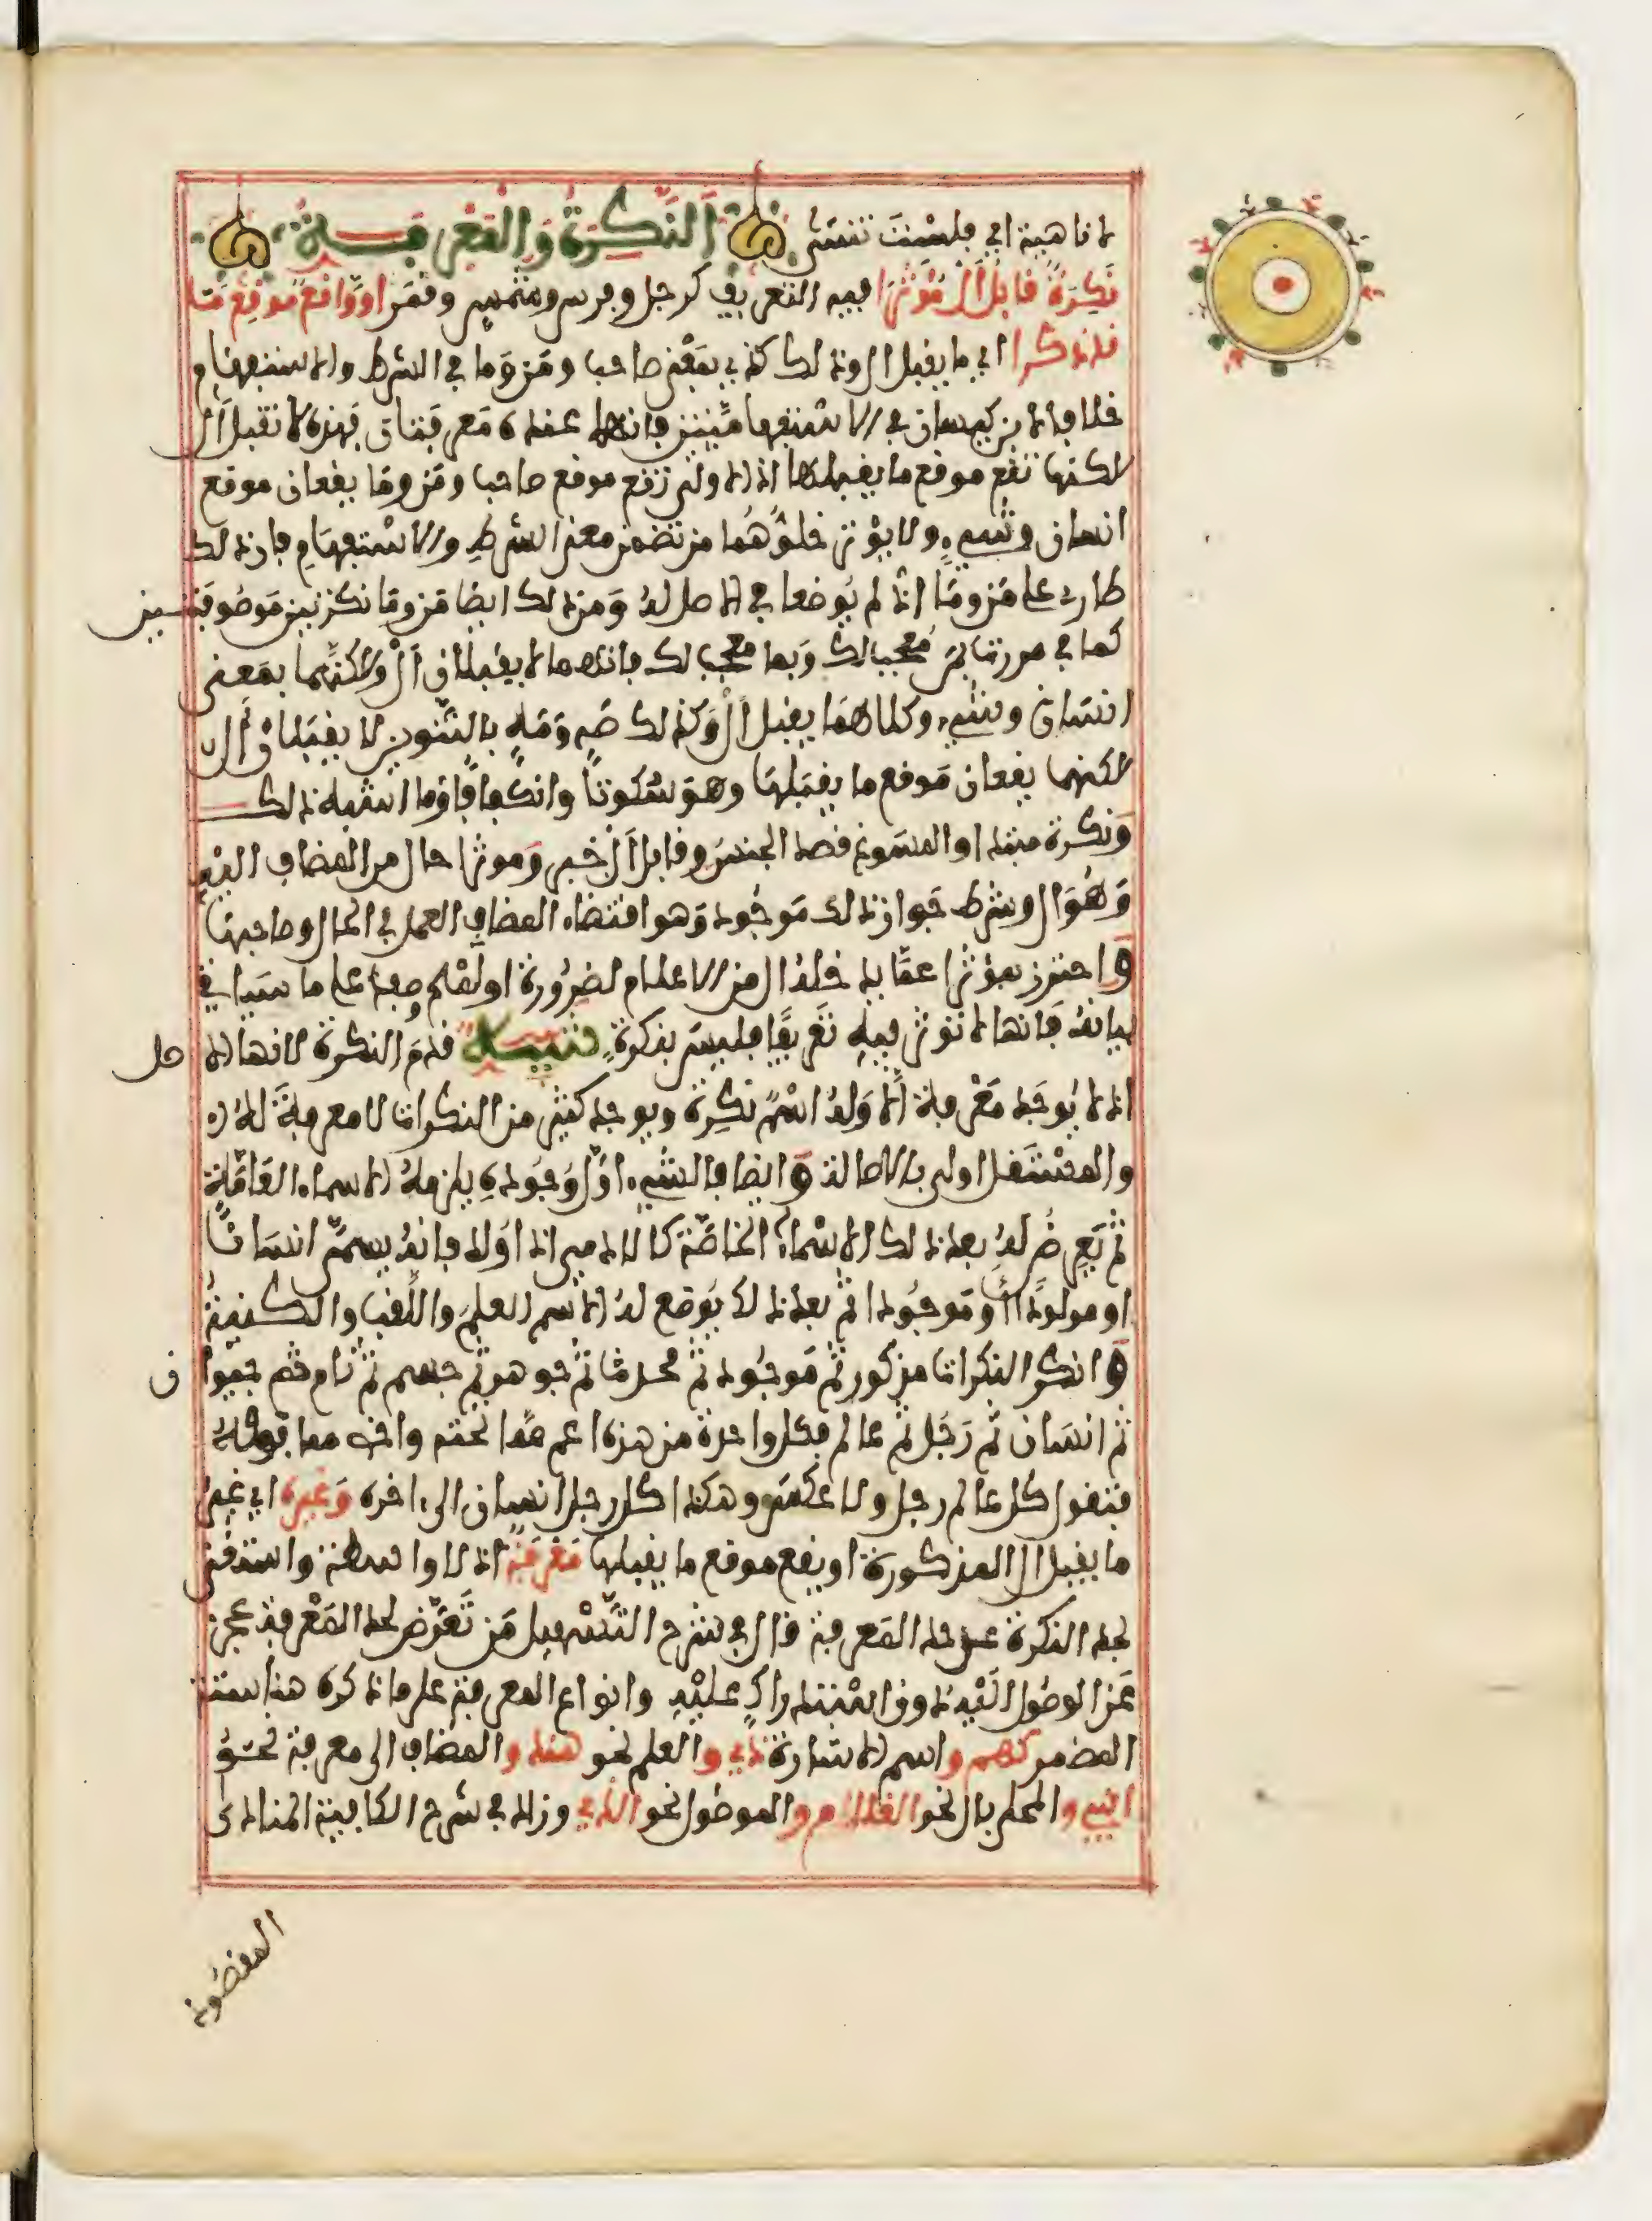 لا ناهية اي فليست تنسى النكرة والمعرفة
نكرة قابل ال مؤثرا فيه التعريف كرجل وفرس وشمس وقمر او واقع موقع ما
قد ذكرا اي ما يقبل ال وذلك كذي بمعنى صاحب ومن وما في الشرط والاستفهام
خلافا لابن كيسان في الاستفهاميتين فانهما عنده معرفتان فهذه لا تقبل ال
لكنها تقع موقع ما يقبلها اذ الاولى تقع موقع صاحب ومن وما يقعان موقع
انسان وشيء ولا يؤثر خلوهما من تضمن معنى الشرط والاستفهام فان ذلك
طارئ على من وما اذ لم يوضعا في الاصل له ومن ذلك ايضا من وما نكرتين موصوفتين
كما في مررت بمن معجب لك وبما معجب لك فانهما لا يقبلان ال ولكنهما بمعنى
انسان وشيء وكلاهما يقبل ال وكذلك صه ومه بالتنوين لا يقبلان ال
لكنهما يقعان موقع ما يقبلها وهو سكوتا وانكفافا وما اشبه ذلك
ونكرة مبتدا والمسوغ قصد الجنس وقابل ال خبر ومؤثرا حال من المضاف اليه
وهو ال وشرط جواز ذلك موجود وهو اقتضاء المضاف العمل في الحال وصاحبها
واحترز بمؤثرا عما يدخله ال من الاعلام لضرورة او لمح وصف على ما سياتي
بيانه فانها لا تؤثر فيه تعريفا فليس بنكرة تنبيه قدم النكرة لانها الاصل
اذ لا يوجد معرفة الا وله اسم نكرة ويوجد كثير من النكرات لا معرفة له
والمستقل اولى بالاصالة وايضا فالشيء اول وجوده يلزمه الاسماء العامة
ثم يعرض له بعد ذلك الاسماء الخاصة كالادمي اذا ولد فانه يسمى انسانا
او مولودا او موجودا ثم بعد ذلك يوضع له الاسم العلم واللقب والكنية
وانكر النكرات مذكور ثم موجود ثم محدث ثم جوهر ثم جسم ثم نام ثم حيوان
ثم انسان ثم رجل ثم عالم فكل واحدة من هذه اعم مما تحته واخص مما فوقه
فتقول كل عالم رجل ولا عكس وهكذا كل رجل انسان الى اخره وغيره اي غير
ما يقبل ال المذكورة او يقع موقع ما يقبلها معرفة اذ لا واسطة واستغنى
بحد النكرة عن حد المعرفة قال في شرح التسهيل من تعرض لحد المعرفة عجز
عن الوصول اليه دون استدراك عليه وانواع المعرفة على ما ذكره هنا ستة
المضمر كهم واسم الاشارة ذي والعلم نحو هند والمضاف الى معرفة نحو
ابني والمحلى بال نحو الغلام والموصول نحو الذي وزاد في شرح الكافية المنادى
المقصود